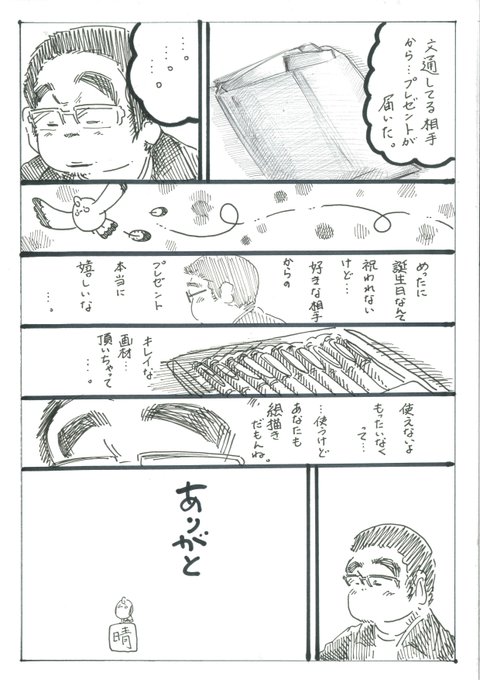 文通してる相手
から…プレゼントが
届いた。
・・・。
・・・。
めったに
誕生日なんて
祝われない
けど…
好きな相手
からの
プレゼント
本当に
嬉しいな
…。
キレイな
画材…
頂いちゃって
…。
使えないよ
もったいなく
って…
…使うけど
あなたも
絵描き
だもんね。
ありがと
晴